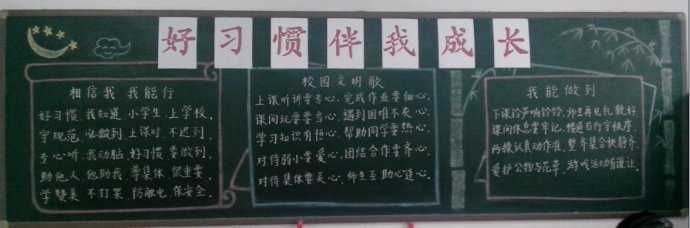 好习惯伴我成长
相信我 我能行
好习惯 我知道 小学生 上学校
守规范 必做到 上课时 不迟到
专心听 我动脑 好习惯 要做到
助他人 他助我 尊集体 很重要
学赞美 不打架 防触电 保安全
校园文明歌
上课听讲要专心,完成作业要细心,
课间玩耍要当心,遇到困难不灰心,
学习知识有恒心,帮助同学要热心,
对待弱小要爱心,团结合作要齐心,
对待集体要关心,师生互助心连心。
我能做到
下课铃声响铃铃,师生再见礼貌好
课间休息要牢记,楼道慢行守秩序
两操认真动作准,整齐集合快静齐
爱护公物与花草,游戏活动有谦让